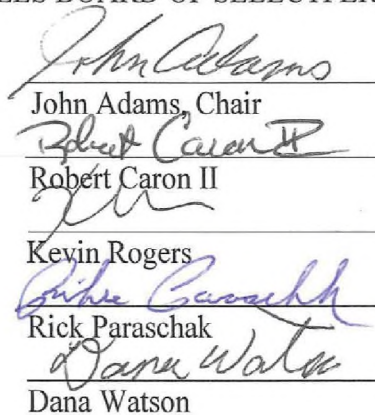 BOARD OF
John Adams
John Adams, Chair
Robert Caron II
Robert Caron II
Kevin Rogers
Rick Paraschak
Dana Watson
Dana Watson